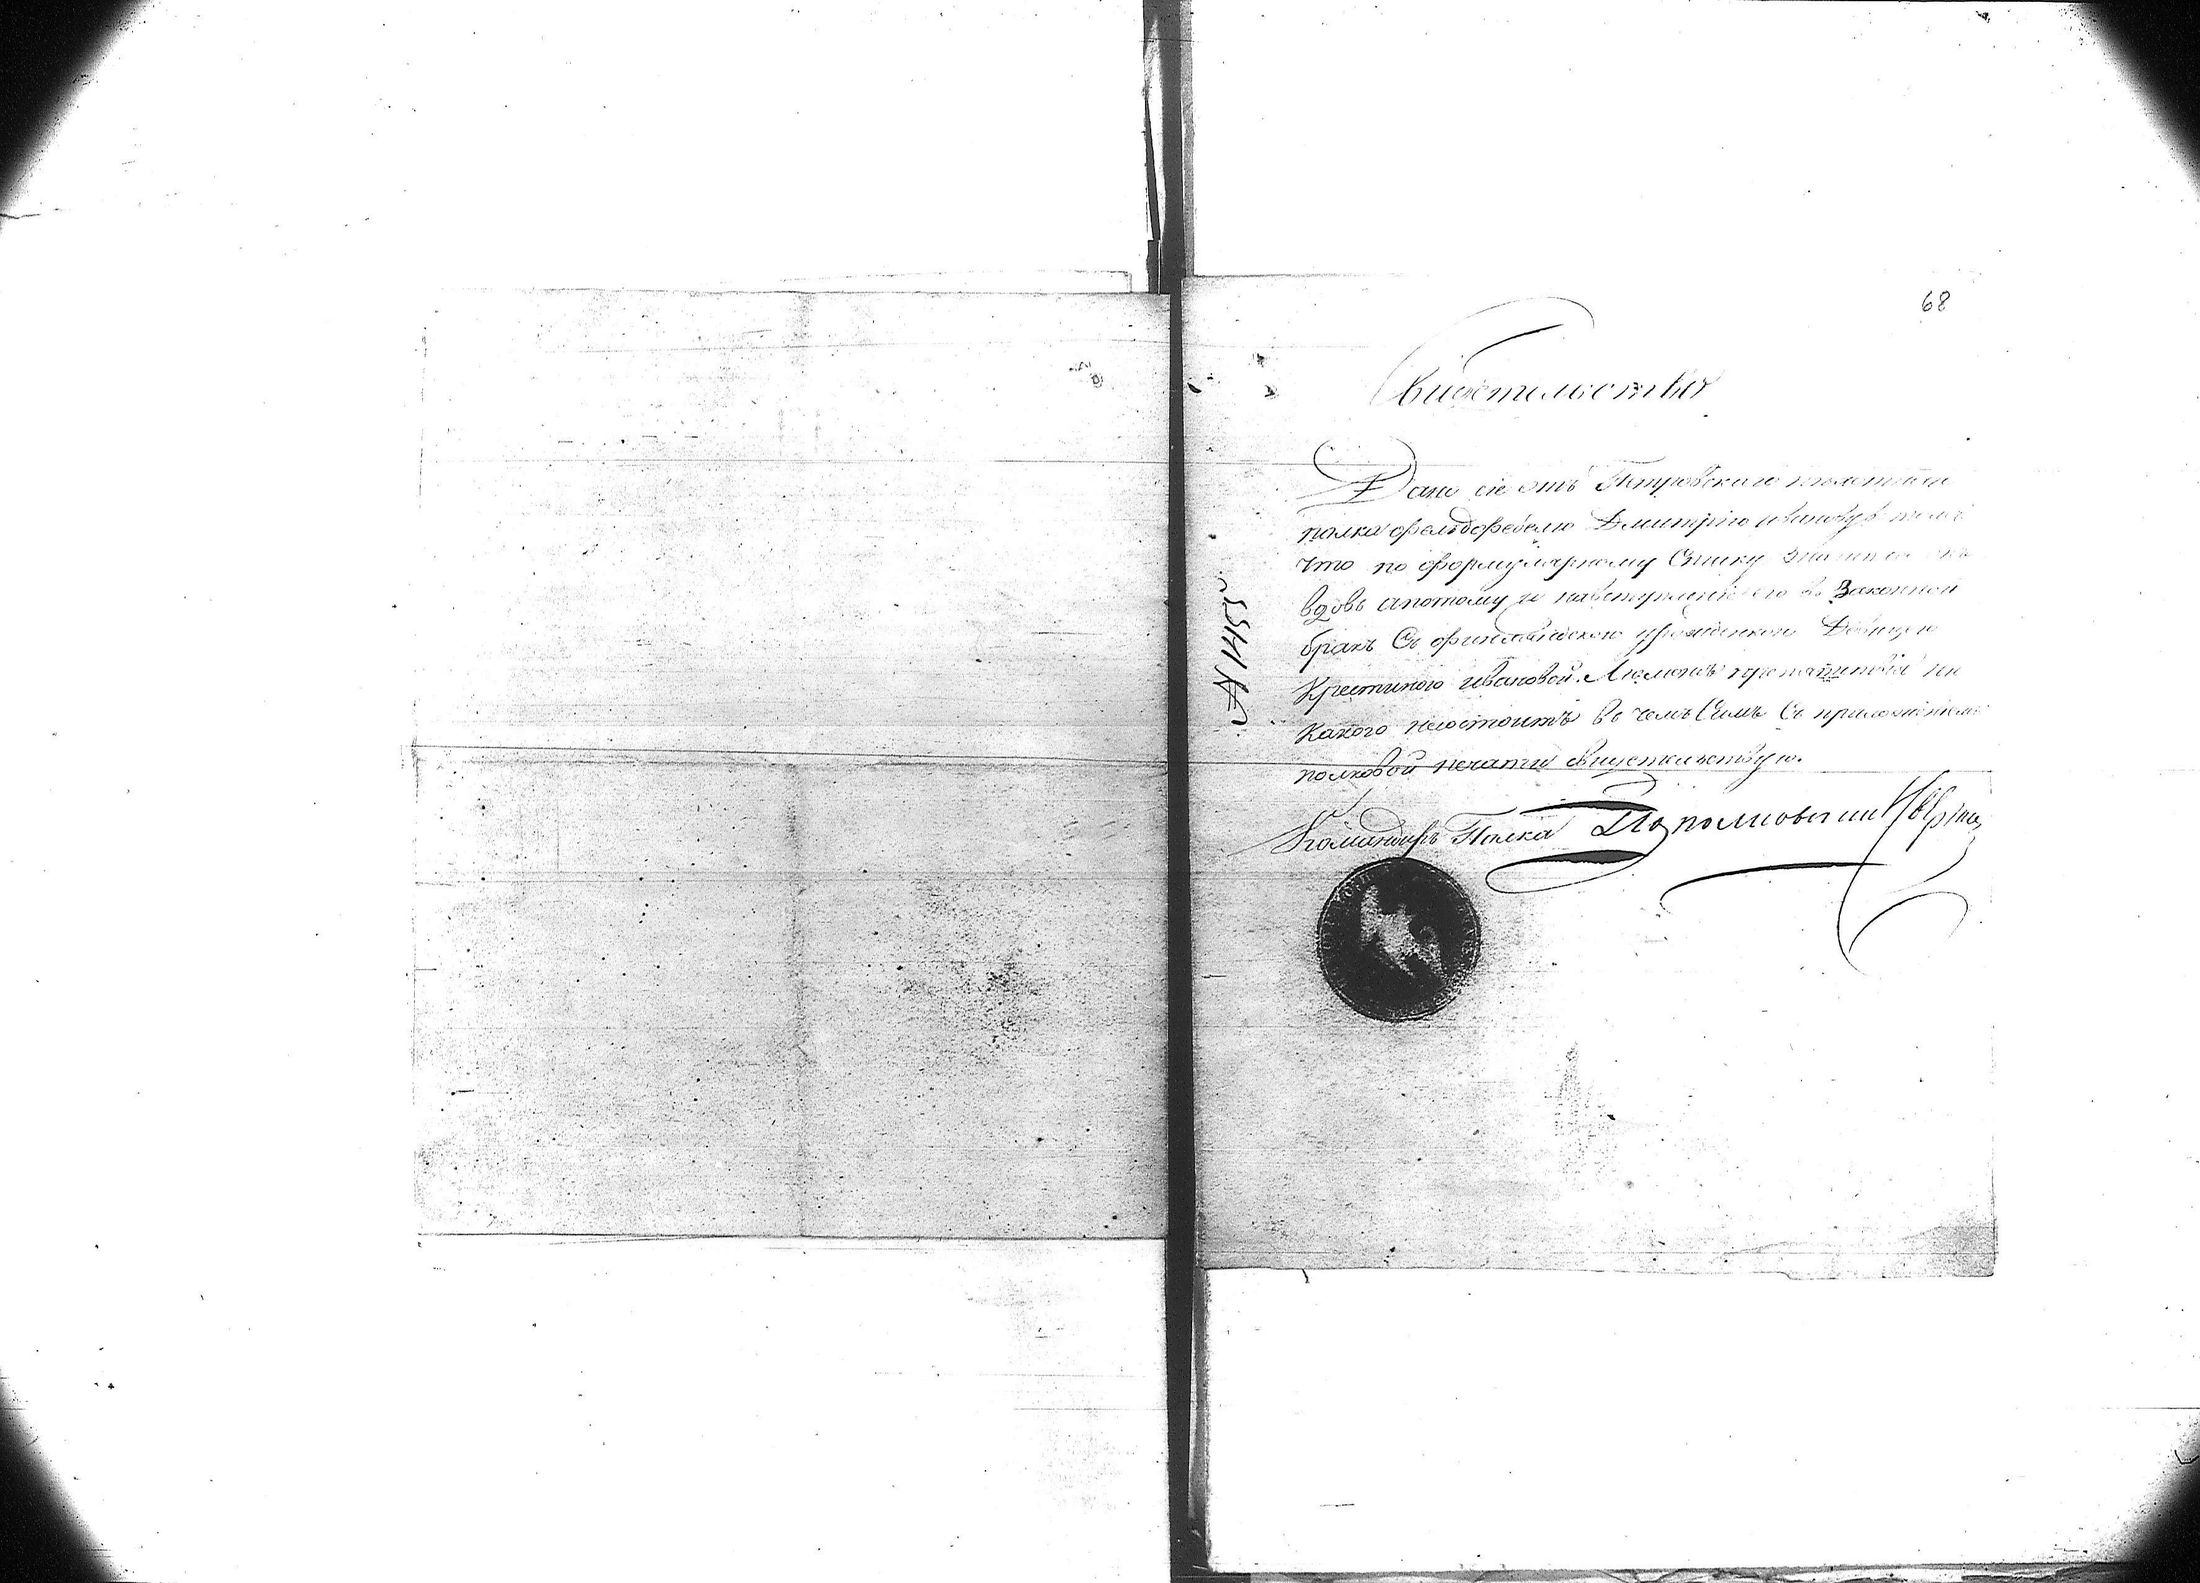 68
Свидетельство
Дано сіе отъ Петровского пехотнаго
полка фельдфебелю Дмитрію иванову в томъ
что по формулярному Списку значится онъ
вдовъ апотому и навступлѣніе его въ Законной
бракъ Съ финлянскою уроженкою Девицею
Кристиною ивановой препятствія ни
какого несостоитъ въ чемъ Симъ Съ приложеніемъ
полковой печати свидетельствую.
Командиръ Полка Подполковникъ